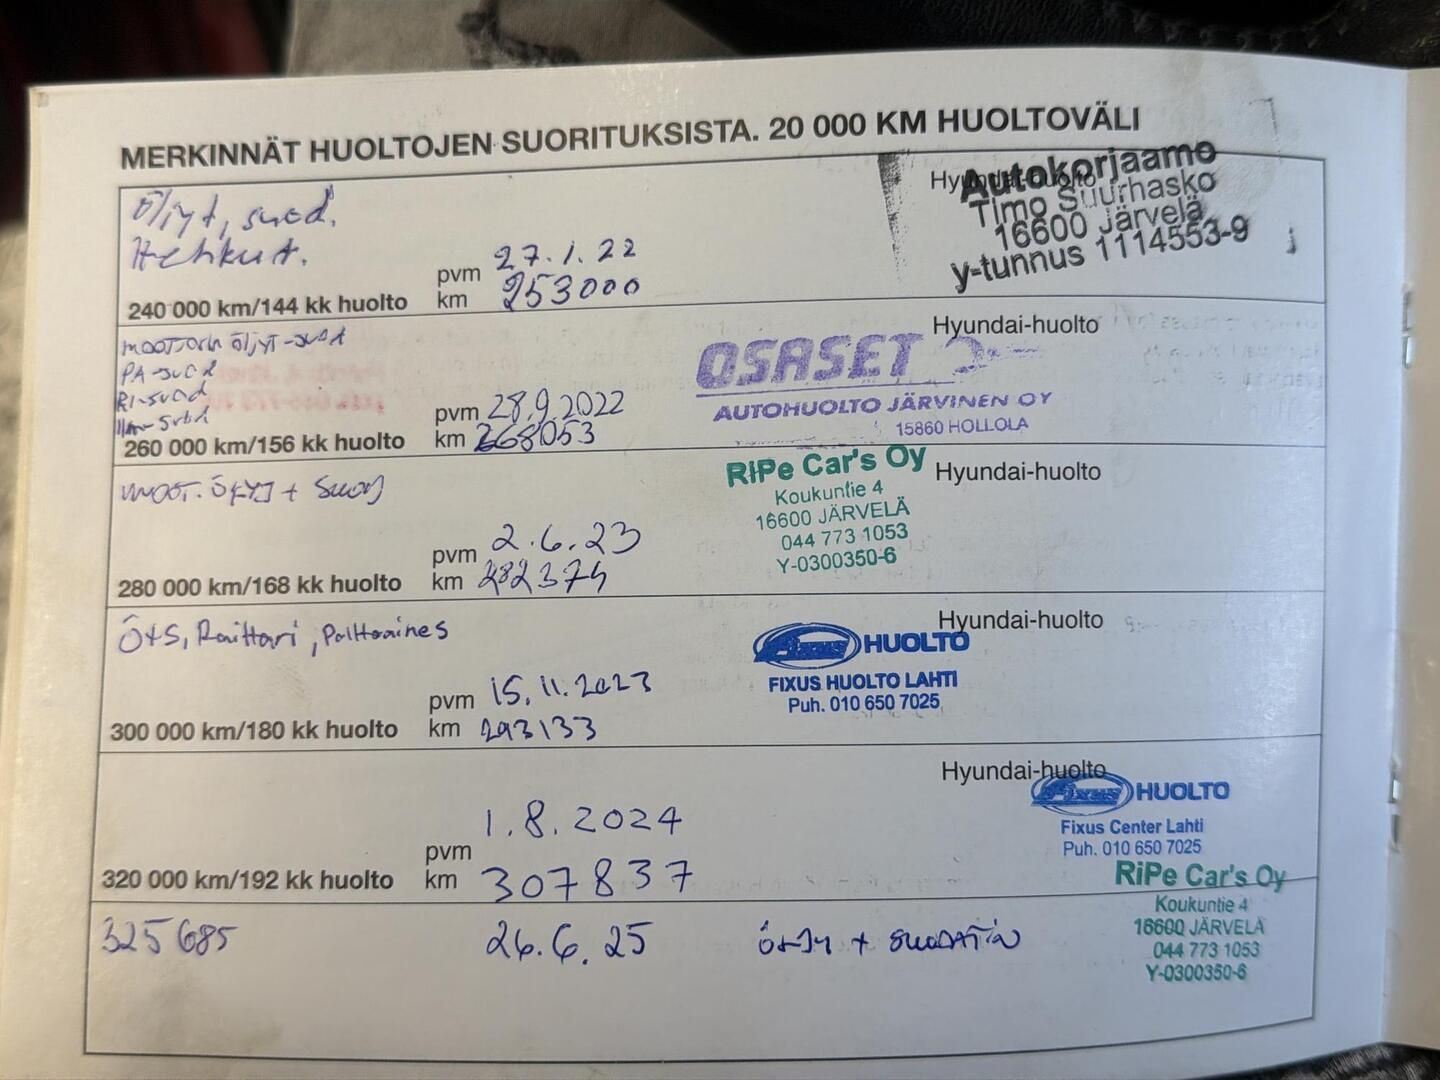 MERKINNÄT HUOLTOJEN SUORITUKSISTA. 20 000 KM HUOLTOVÄLI
Öljyt, suod.
Hehkut.
pvm 27.1.22
240 000 km/144 kk huolto km 253000
Hyundai-huolto
Autokorjaamo
Timo Suurhasko
16600 Järvelä
y-tunnus 1114553-9
moottorin öljyt-suod
PA-suod
RI-suod
ilm-suod
pvm 28.9.2022
260 000 km/156 kk huolto km 268053
Hyundai-huolto
OSASET
AUTOHUOLTO JÄRVINEN OY
15860 HOLLOLA
moot. öljy + suod
pvm 2.6.23
280 000 km/168 kk huolto km 282374
Hyundai-huolto
RiPe Car's Oy
Koukuntie 4
16600 JÄRVELÄ
044 773 1053
Y-0300350-6
Ö+S, Raitari, Polttoaines
pvm 15.11.2023
300 000 km/180 kk huolto km 293133
Hyundai-huolto
Fixus HUOLTO
FIXUS HUOLTO LAHTI
Puh. 010 650 7025
1.8.2024
pvm
320 000 km/192 kk huolto km 307837
Hyundai-huolto
Fixus HUOLTO
Fixus Center Lahti
Puh. 010 650 7025
325685 26.6.25 öljy + suodatin
RiPe Car's Oy
Koukuntie 4
16600 JÄRVELÄ
044 773 1053
Y-0300350-6